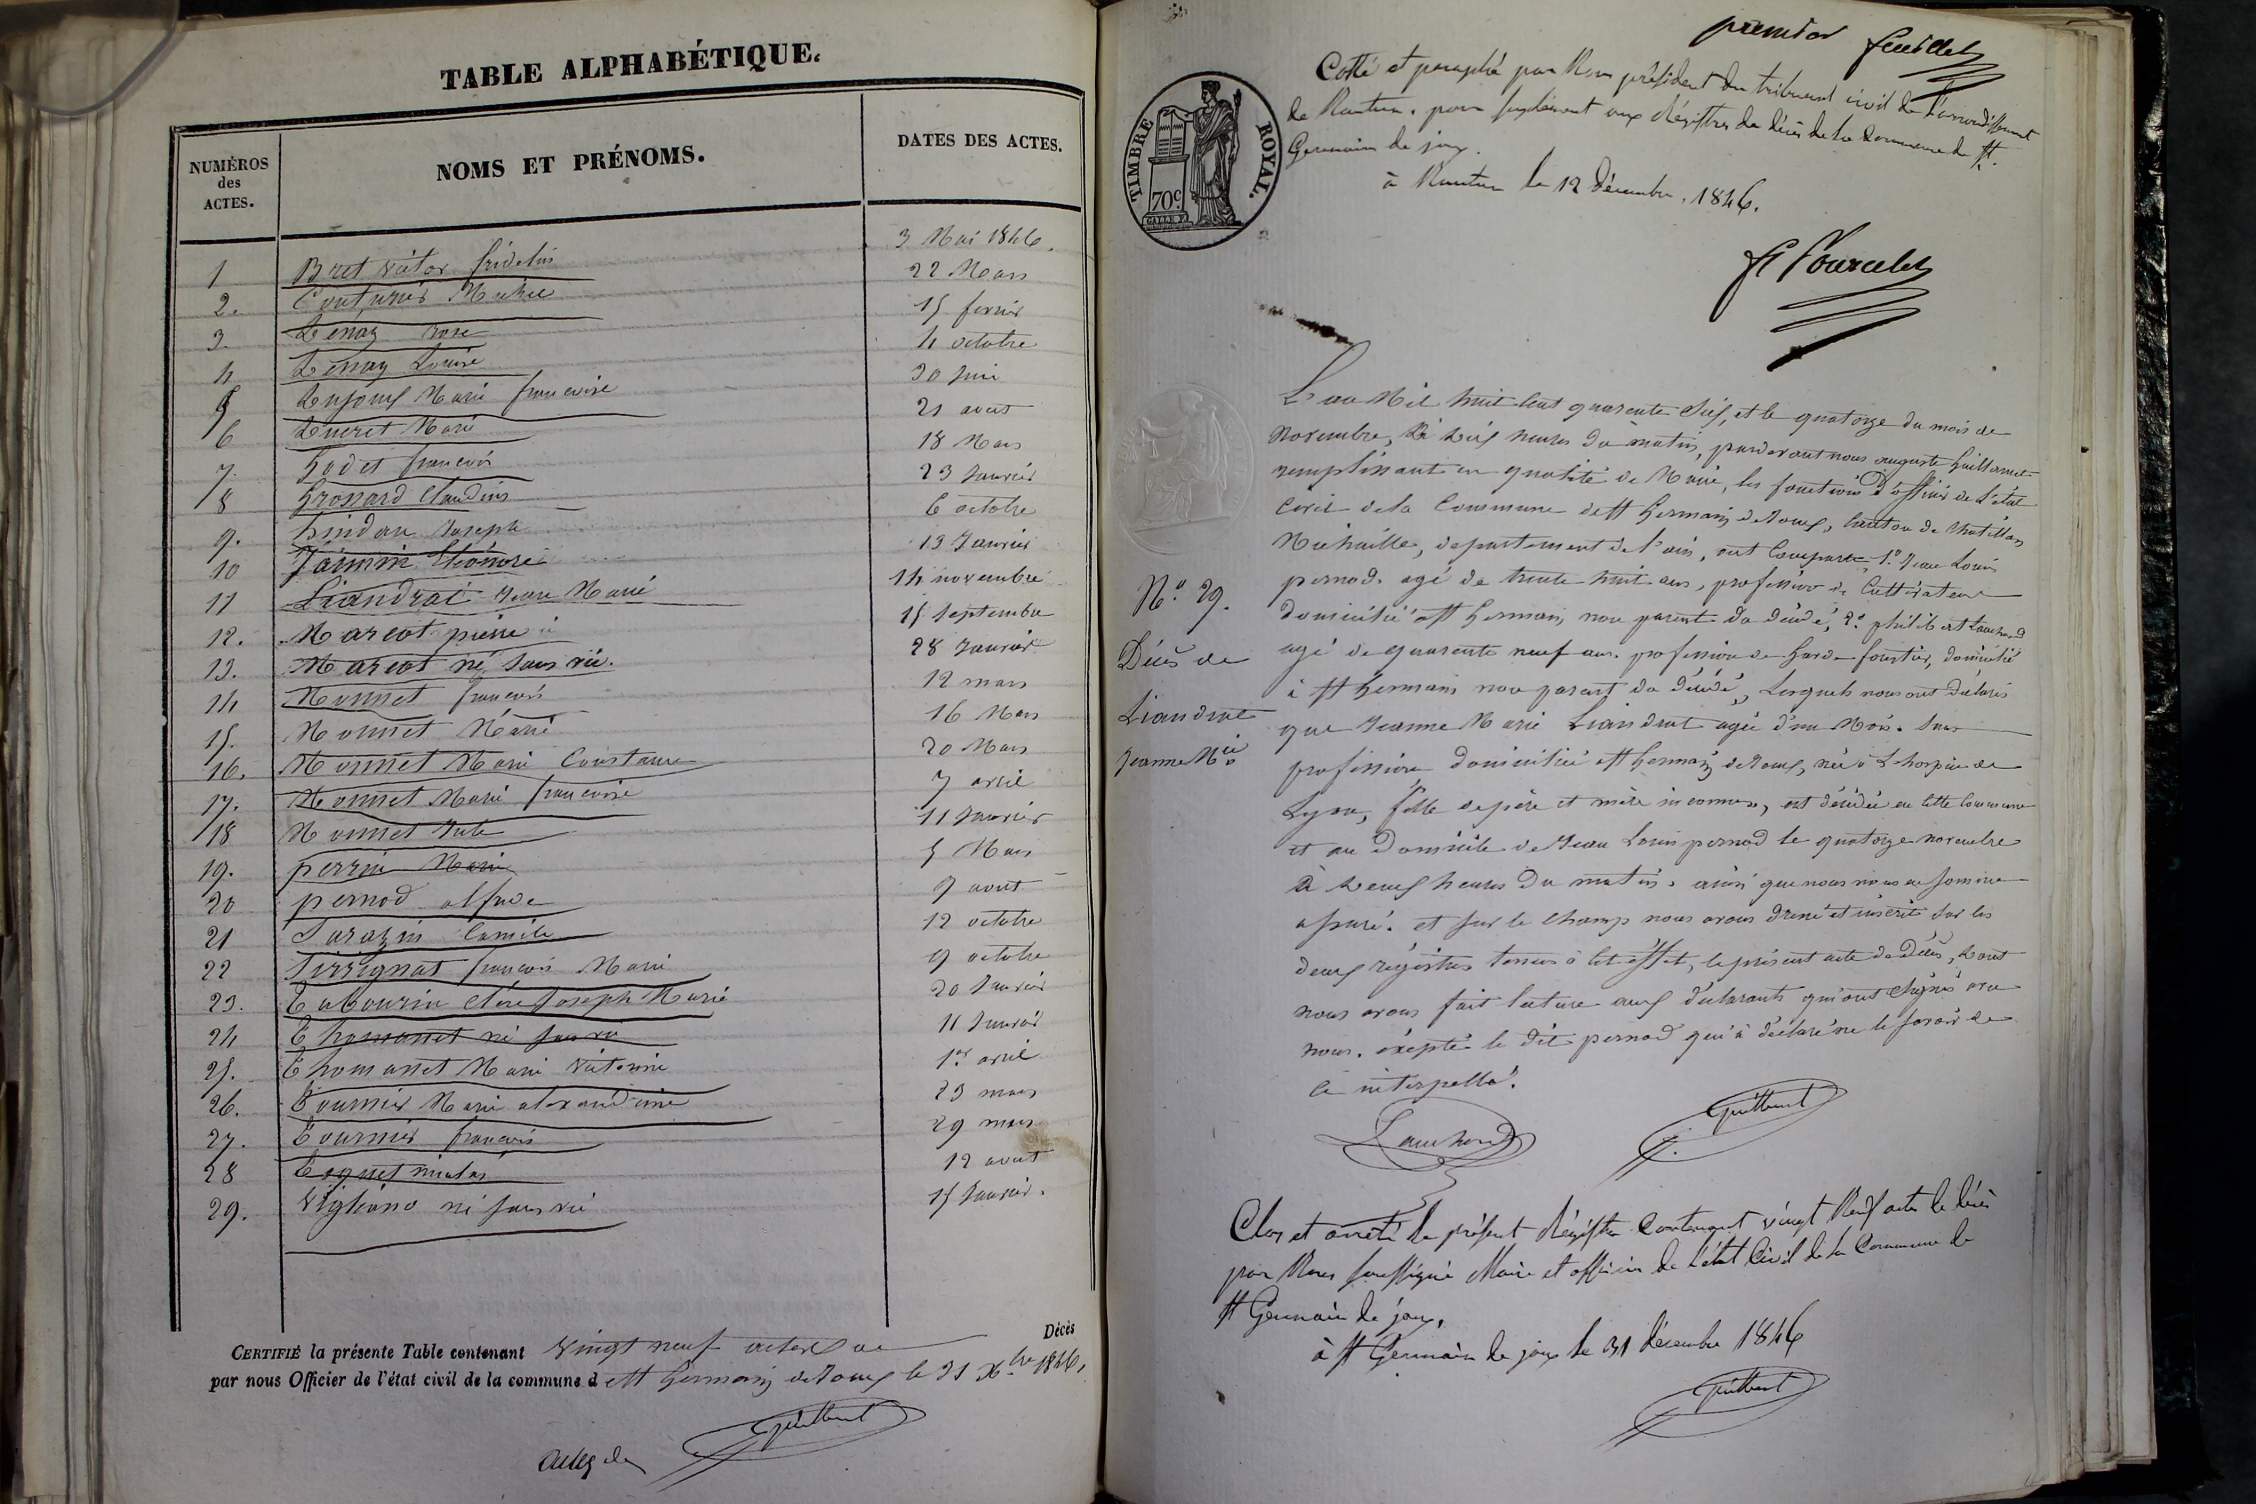 TABLE ALPHABÉTIQUE.
NUMÉROS des ACTES.
NOMS ET PRÉNOMS.
DATES DES ACTES.
1 Bret victor fridelin 3 Mai 1846.
2. Couturier Marie 22 Mars
3. Lenoy rose 15 fevrier
4 Lenoy Louise 4 octobre
5 Marie francoise 30 Juin
6 Marie 21 aout
7. Godet francois 18 Mars
8 Grossard Claudius 23 Janvier
9. Joseph 6 octobre
10 Jaimin Eléonore 13 Janvier
11 Liandrat Jeane Marie 14 novembre
12. Marcot pierre 15 septembre
13. Marcot né sans vie. 28 Janvier
14 Monnet francois 12 mars
15. Monnet Marie 16 Mars
16. Monnet Marie Constance 20 Mars
17. Monnet Marie francoise 7 avril
18 Monnet Jule 11 Janvier
19. perrin Marie 5 Mars
20 pernod alfrede 9 aout
21 Sarazin Camile 12 octobre
22 francois Marie 9 octobre
23. Tabourin Joseph Marie 20 Janvier
24 Thomasset né sans vie 11 Janvier
25. Thomasset Marie victorine 1er avril
26. Tournier Marie alexandrine 23 mars
27. Tournier francois 29 mars
28 12 avout
29. Vigliano né sans vie 15 Janvier.
CERTIFIÉ la présente Table contenant vingt neuf actes de Décès
par nous Officier de l'état civil de la commune d e St Germain de Joux le 31 Xbre 1846.
Guilland
premier feuillet
Cotté et paraphé par Nous président du tribunal civil de l'arrondissement
de Nantua. pour supplément aux Régistres de décès de la Commune de St.
Germain de joux.
à Nantua le 12 décembre, 1846.
TIMBRE ROYAL.
70c
L'an Mil huit Cent quarente Six, et le quatorze du mois de
novembre, à heures du matin, pardevant nous auguste
remplissant en qualité de Maire, les fonctions d'officier de l'etat
Civil de la Commune de St Germain de Joux, Canton de Chatillon
Michaille, departement de l'ain, ont Comparu 1° Jean Louis
pernod. agé de trente huit ans, profession de Cultivateur
domicilié a St Germain, non parent du décédé, 2° philibert
agé de quarente neuf ans. profession de Garde forestier, domicilié
à St Germain non parent du décédé, Lesquels nous ont déclaré
que Jeanne Marie Liandrat agée d'un Mois. Sans
profession domiciliée a St Germain de Joux, née à L'hospice de
Lyon, fille de père et mère inconnus, est décédée en cette Commune
et au Domicile de Jean Louis pernod le quatorze novembre
à heures du matin. ainsi que nous nous en sommes
assuré. et sur le champ nous avons dressé et inscrit sur les
deux régistres tenus à cet effet, le présent acte de Décès, dont
nous avons fait lecture aux déclarants qui ont signés avec
nous. éxepté le dit pernod qui à déclaré ne le savoir de
ce interpellé.
N°. 29.
Décès de
Liandrat
Jeanne Mie
Clos et arreté le présent Régistre Contenant vingt Neuf actes de décès
par Nous soussigné Maire et officier de l'état Civil de la Commune de
St Germain de joux,
à St Germain de joux le 31 décembre 1846